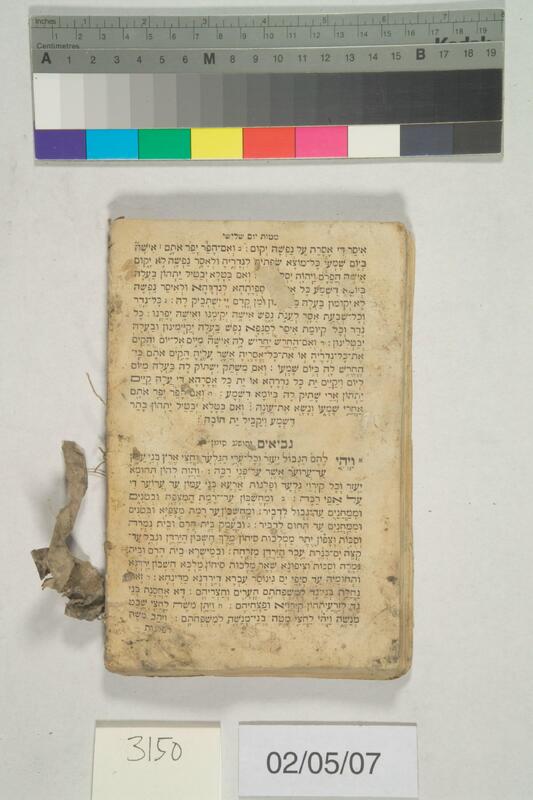 Inches 1 2 3 4 5 6 7 8
Centimetres 1 2 3 4 5 6 7 8 9 10 11 12 13 14 15 16 17 18 19
A 1 2 3 4 5 6 M 8 9 10 11 12 13 14 15 B 17 18 19
מטות יום שלישי
איסר די אסרת על נפשה יקום : ואם הפר יפר אתם אישה
ביום שמעו כל מוצא שפתיה לנדריה ולאסר נפשה לא יקום
אישה הפרם ויהוה : ואם בטלא יבטיל יתהון בעלה
ביומא דשמע כל סיפותהא לנדרהא ולאיסר נפשה
לא יקומון בעלה ומן קדם יי ישתביק לה : כל נדר
וכל שבעת אסר לענת נפש אישה יקימנו ואישה יפרנו : כל
נדר וכל קיומת איסר לסגפא נפש בעלה יקיימינון ובעלה
יבטלינון : ואם החרש יחריש לה אישה מיום אל יום והקים
את כל נדריה או את כל אסריה אשר עליה הקים אתם כי
החריש לה ביום שמעו : ואם משתק ישתוק לה בעלה מיום
ליום ויקיים ית כל נדרהא או ית כל אסרהא די עלה קיים
יתהון ארי שתיק לה ביומא דשמע : ואם הפר יפר אתם
אחרי שמעו ונשא את עונה : ואם בטלא יבטיל יתהון בתר
דשמע ויקביל ית חובה :
נביאים יהושע סימן
ויהי להם הגבול יעזר וכל ערי הגלעד וחצי ארץ בני עמון
עד ערוער אשר על פני רבה : והוה להון תחומא
יעזר וכל קירוי גלעד ופלגות ארעא בני עמון עד ערוער די
על אפי רבה : ומחשבון עד רמת המצפה ובטנים
וממחנים עד גבול לדביר : ומחשבון עד רמת מצפיא ובטנים
וממחנים עד תחום לדביר : ובעמק בית הרם ובית נמרה
וסכות וצפון יתר ממלכות סיחון מלך חשבון הירדן וגבל עד
קצה ים כנרת עבר הירדן מזרחה : ובמישרא בית הרם ובית
נמרה וסכות וציפונא שאר מלכות סיחון מלכא חשבון ירדנא
ותחומיה עד סיפי ים גינוסר עברא דירדנא מדינחא :
נחלת בני גד למשפחתם הערים וחצריהם : דא אחסנת בני
גד לזרעיתהון קירויא ופצחיהם : ויתן משה לחצי שבט
מנשה ויהי לחצי מטה בני מנשה למשפחתם : ויהב משה
לפלגות
3150
02/05/07